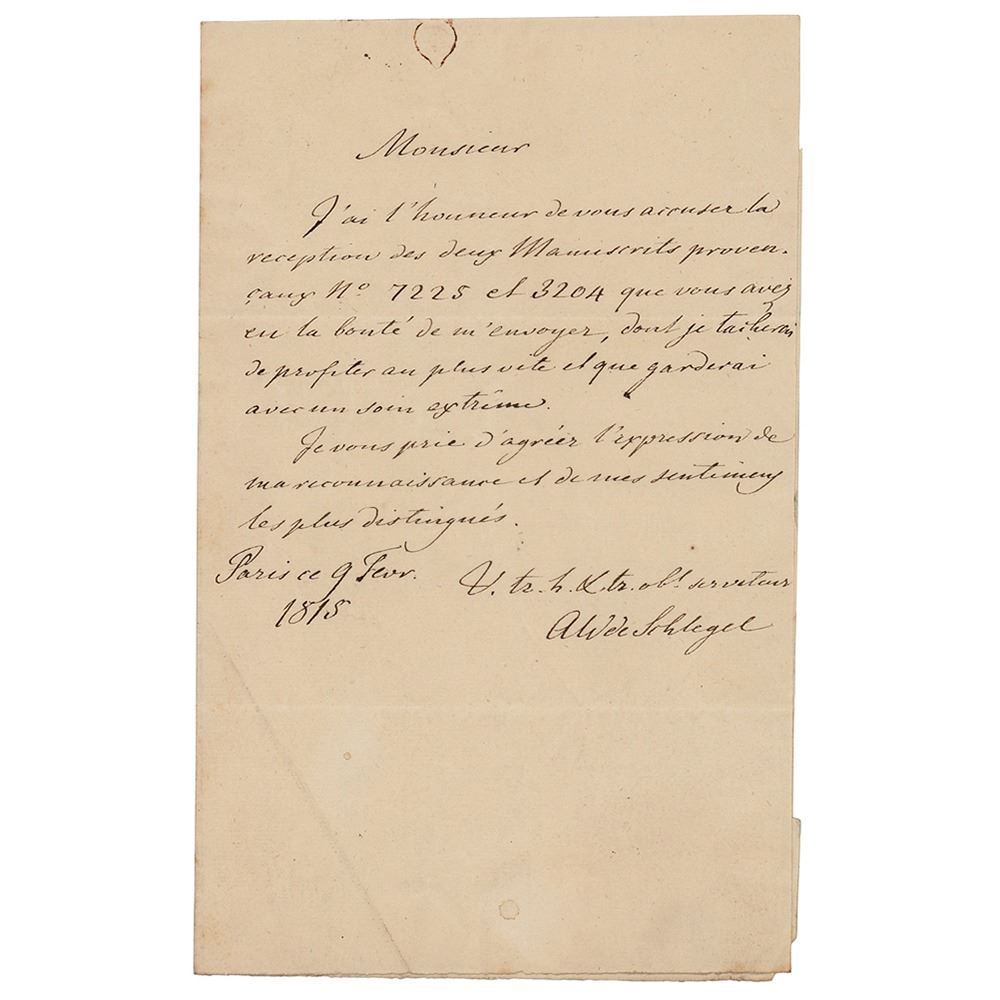 Monsieur
J'ai l'honneur de vous accuser la
reception des deux Manuscrits proven-
çaux N.º 7225 et 3204 que vous avez
eu la bonté de m'envoyer, dont je tacherai
de profiter au plus vite et que garderai
avec un soin extrême.
Je vous prie d'agréer l'expression de
ma reconnaissance et de mes sentimens
les plus distingués.
Paris ce 9 Fevr.
1815
V. tr. h. & tr. obt. serviteur
AW de Schlegel